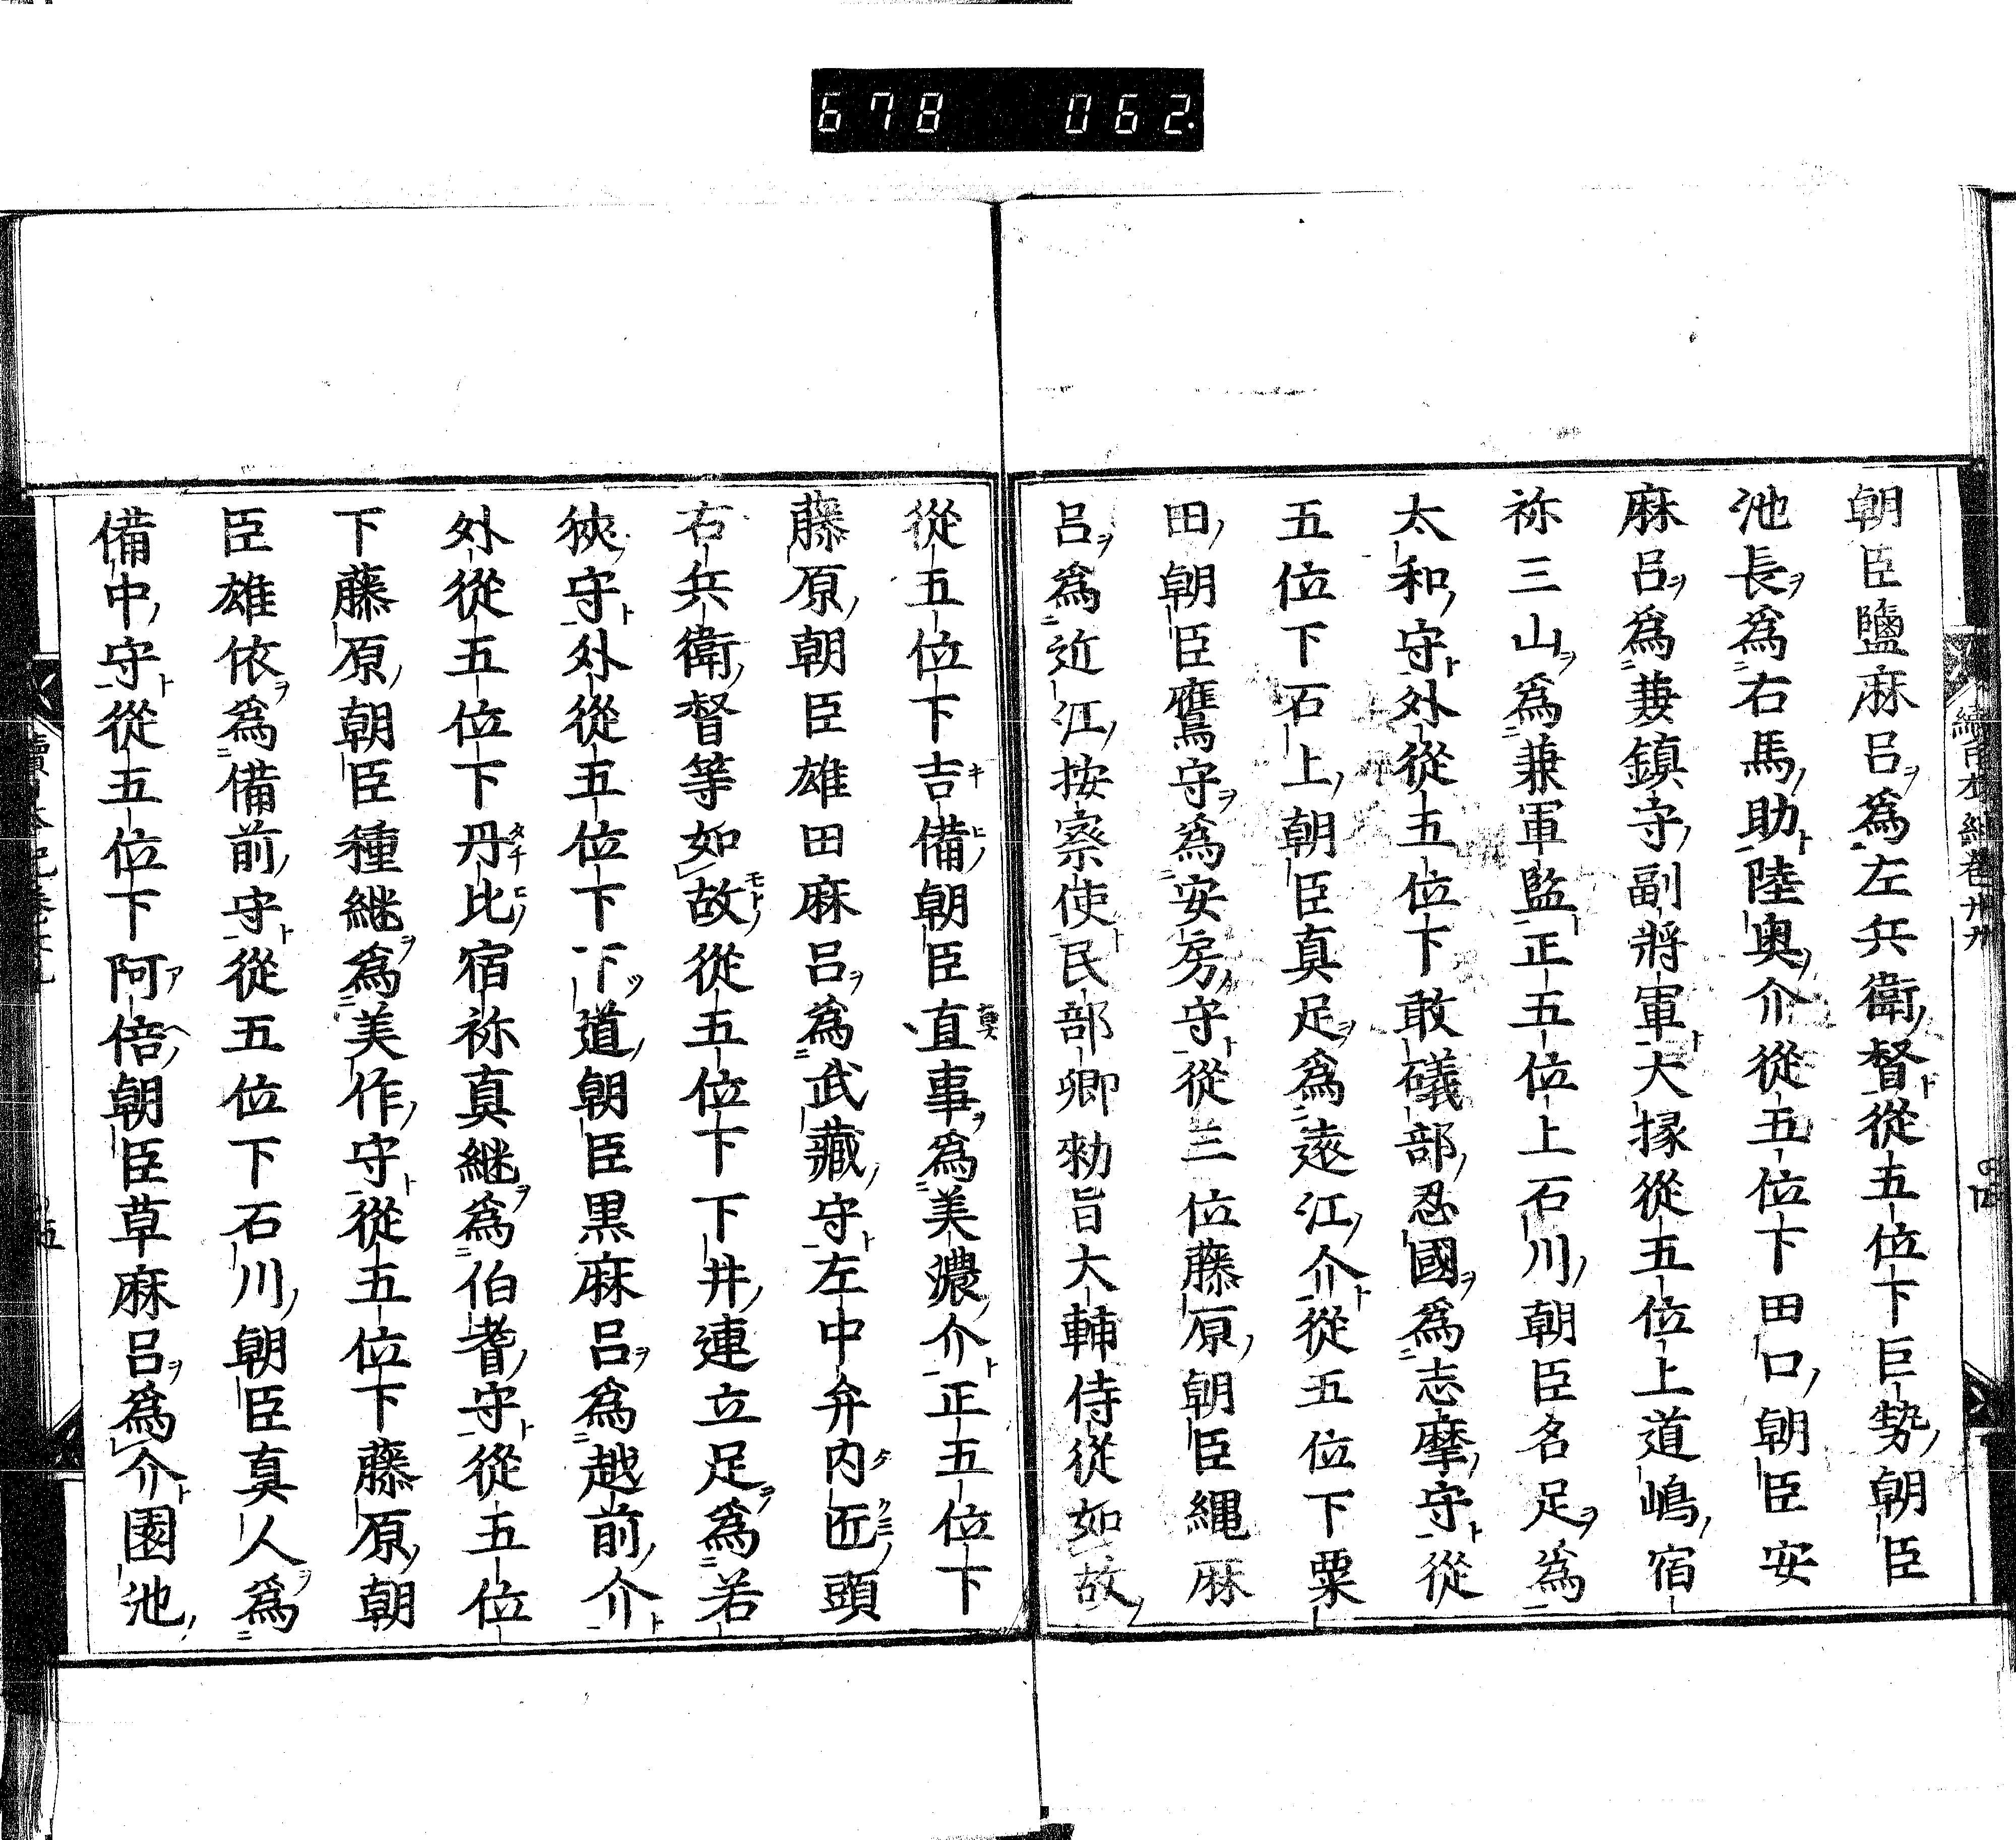 678 062.
朝臣鹽麻呂爲左兵衛督從五位下巨勢朝臣
池長爲右馬助陸奥介從五位下田口朝臣安
麻呂爲兼鎮守副將軍大掾從五位上道嶋宿
祢三山爲兼軍監正五位上石川朝臣名足爲
太和守外從五位下敢礒部忍國爲志摩守從
五位下石上朝臣真足爲遠江介從五位下粟
田朝臣鷹守爲安房守從三位藤原朝臣縄麻
呂爲近江按察使民部卿勅旨大輔侍從如故
從五位下吉備朝臣直事爲美濃介正五位下
藤原朝臣雄田麻呂爲武藏守左中弁内匠頭
右兵衛督等如故從五位下下井連立足爲若
狹守外從五位下下道朝臣黒麻呂爲越前介
外從五位下丹比宿祢真継爲伯耆守從五位
下藤原朝臣種継爲美作守從五位下藤原朝
臣雄依爲備前守從五位下石川朝臣真人爲
備中守從五位下阿倍朝臣草麻呂爲介園池